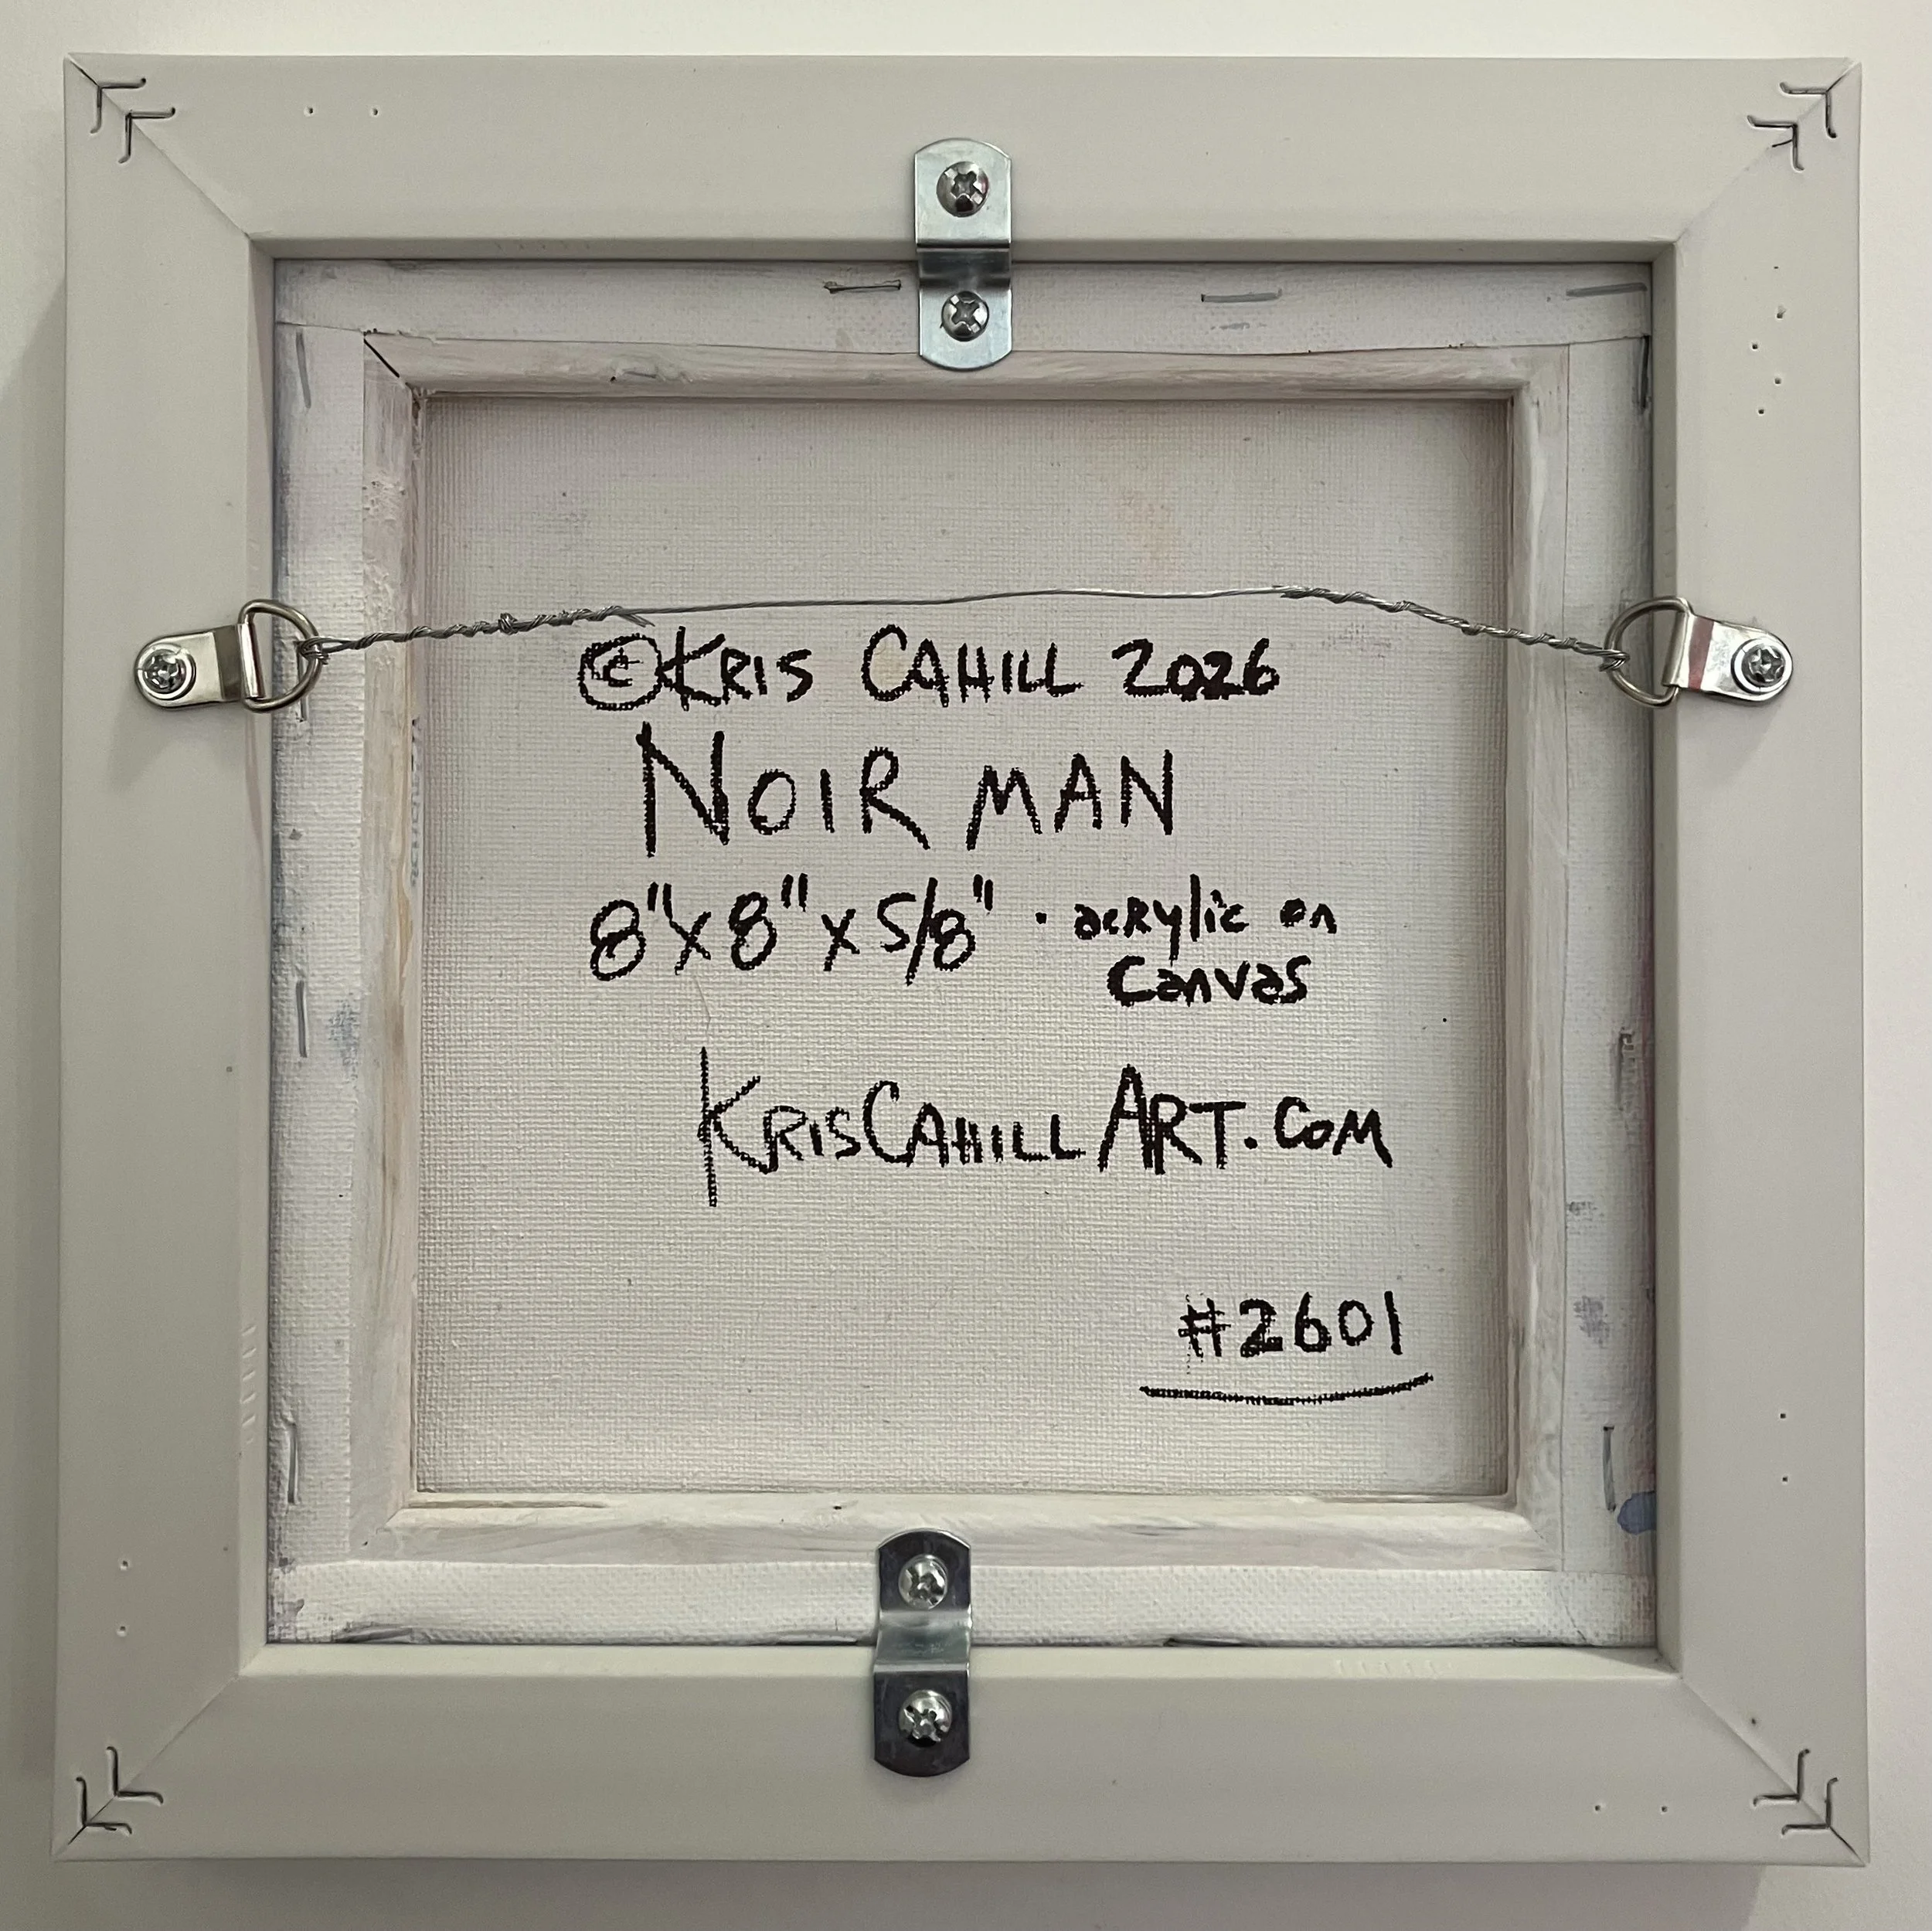 ©KRIS CAHILL 2026
NOIR MAN
8"x8"x5/8" · acrylic on
canvas
KRISCAHILLART.COM
#2601